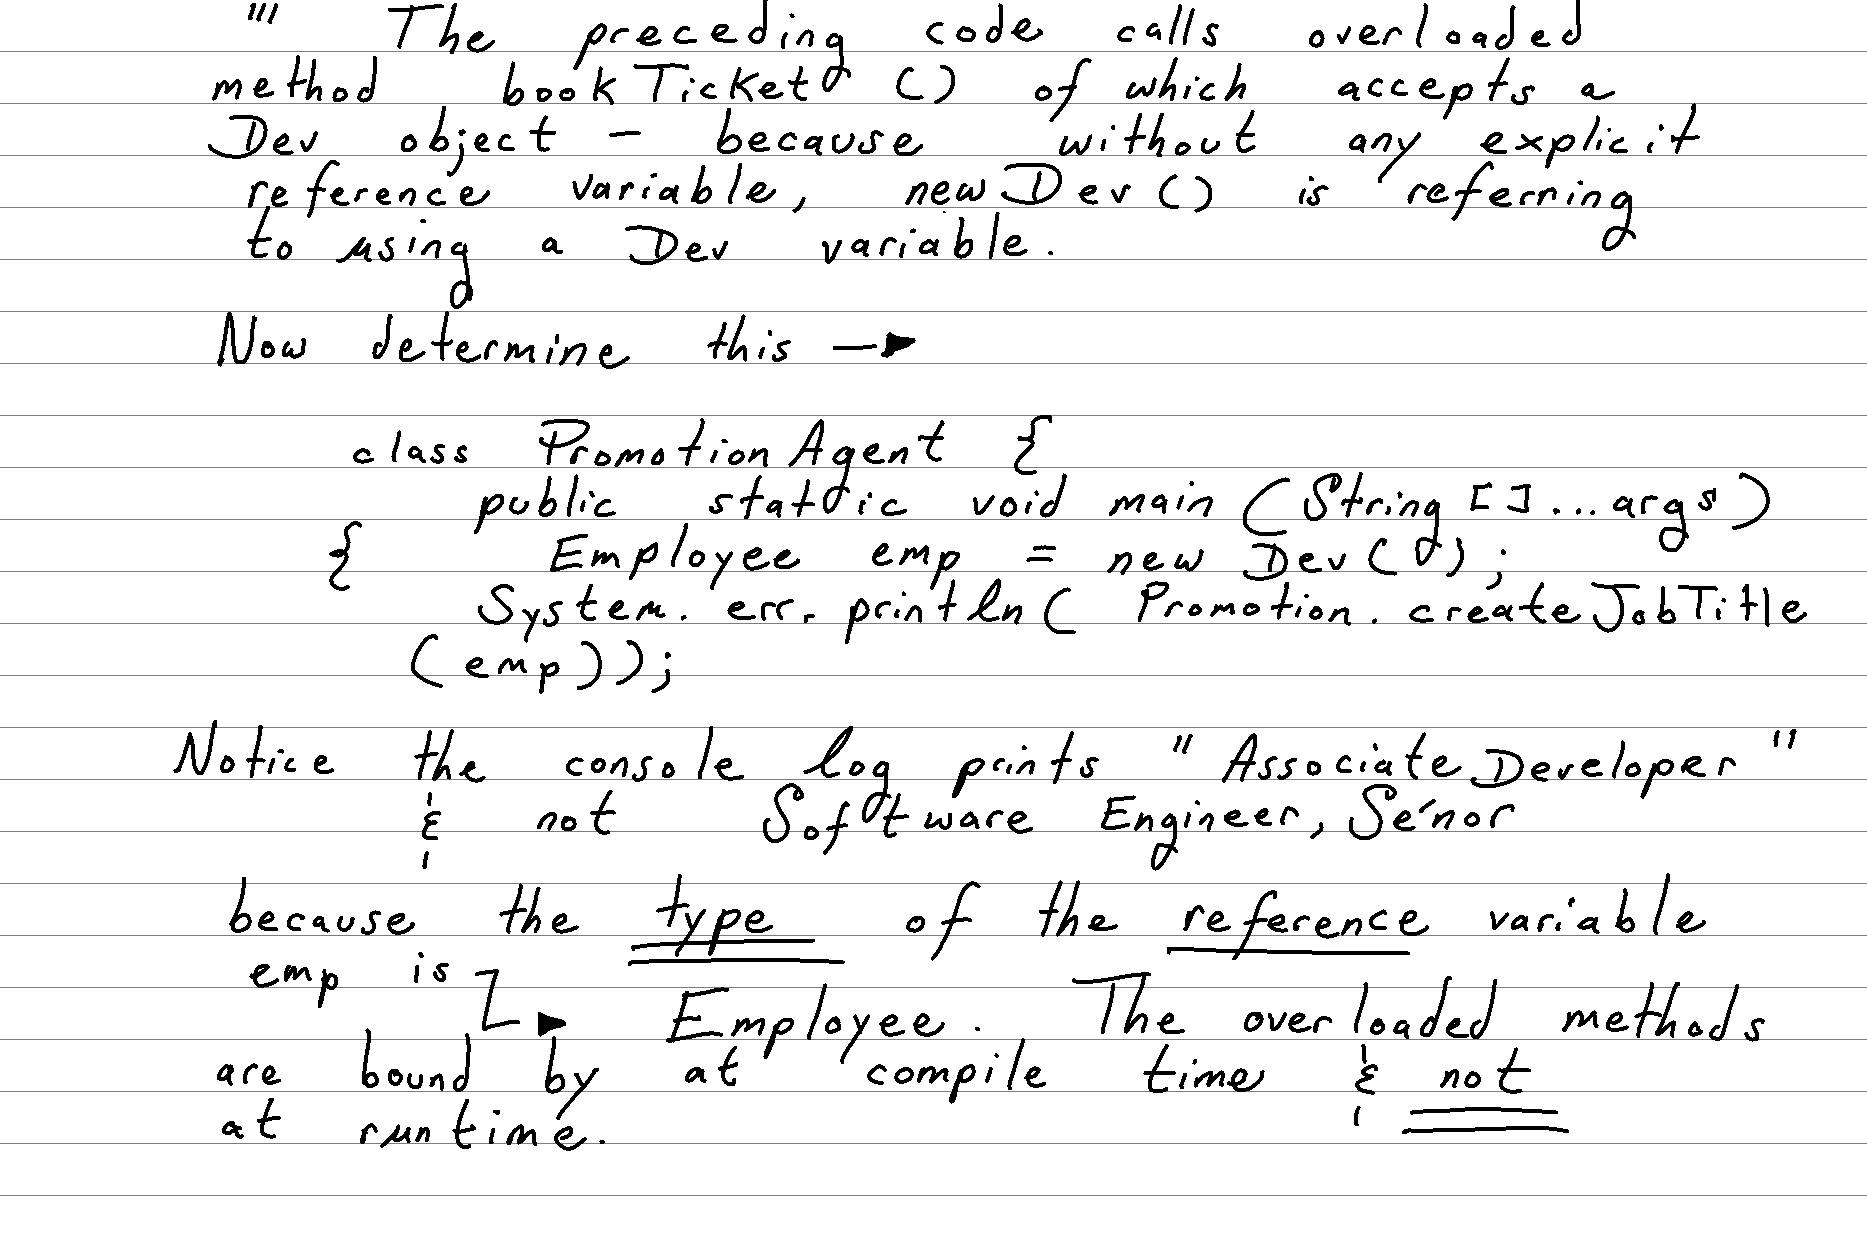 "' The preceding code calls overloaded
method bookTicket () of which accepts a
Dev object - because without any explicit
reference variable, new Dev () is referring
to using a Dev variable.
Now determine this →
class PromotionAgent {
public static void main (String []... args)
{ Employee emp = new Dev ();
System. err. println ( Promotion. createJobTitle
(emp));
Notice the console log prints "Associate Developer"
& not Software Engineer, Sénor
because the type of the reference variable
emp is
→ Employee. The overloaded methods
are bound by at compile time & not
at runtime.